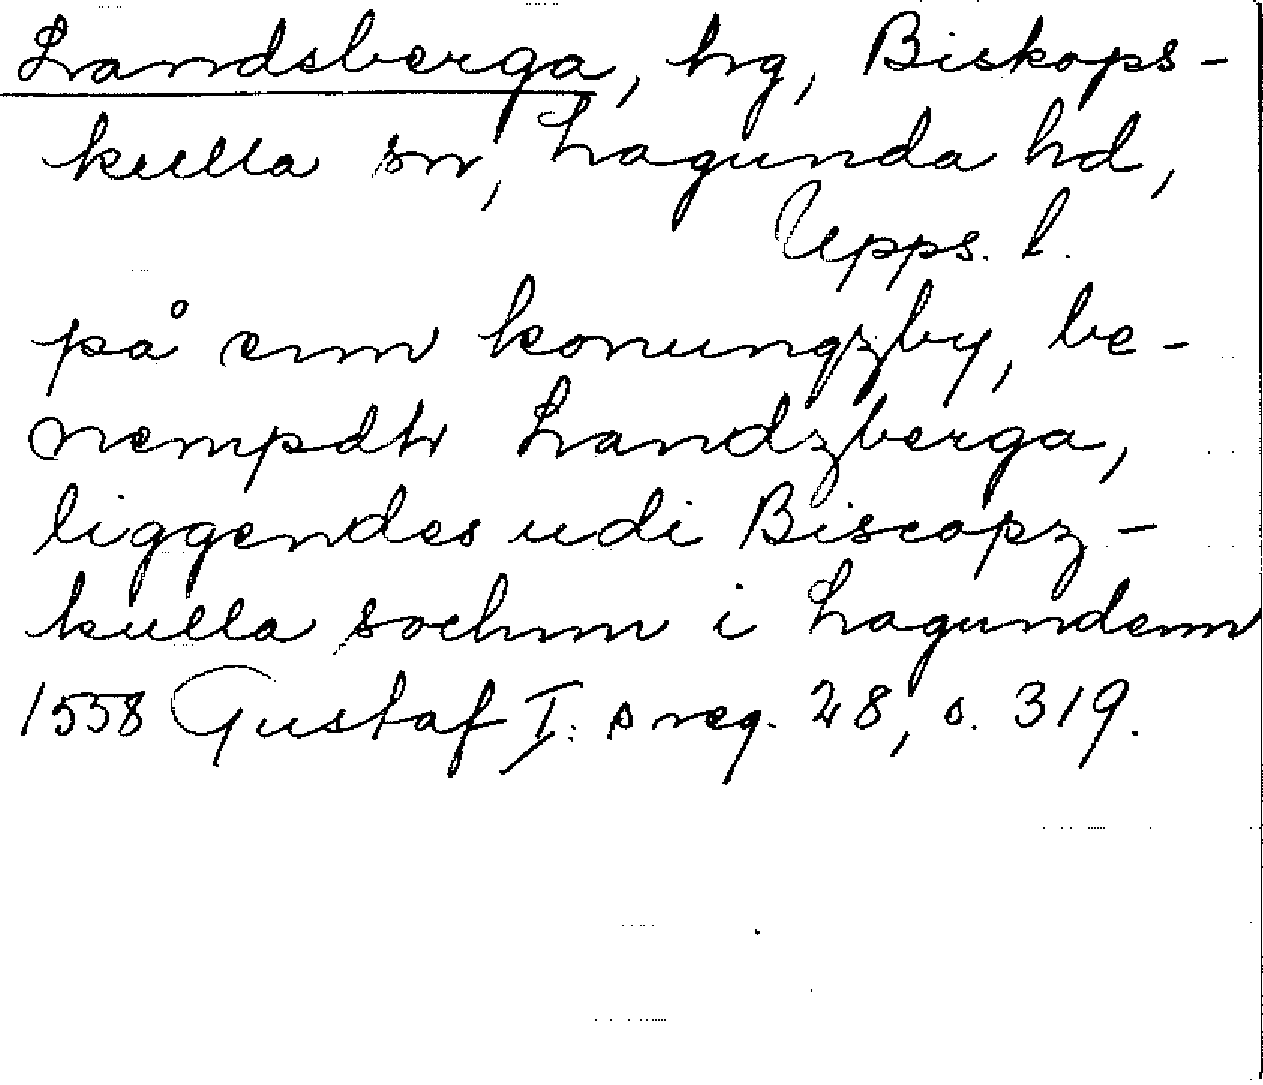 Landsberga, hg, Biskops-
kulla sn, Lagunda hd,
Upps. l.
på enn konungzby, be-
nempdh Landzberga,
liggendes udi Biscopz-
kulla sochnn i Lagundenn
1558 Gustaf I:s reg. 28, s. 319.